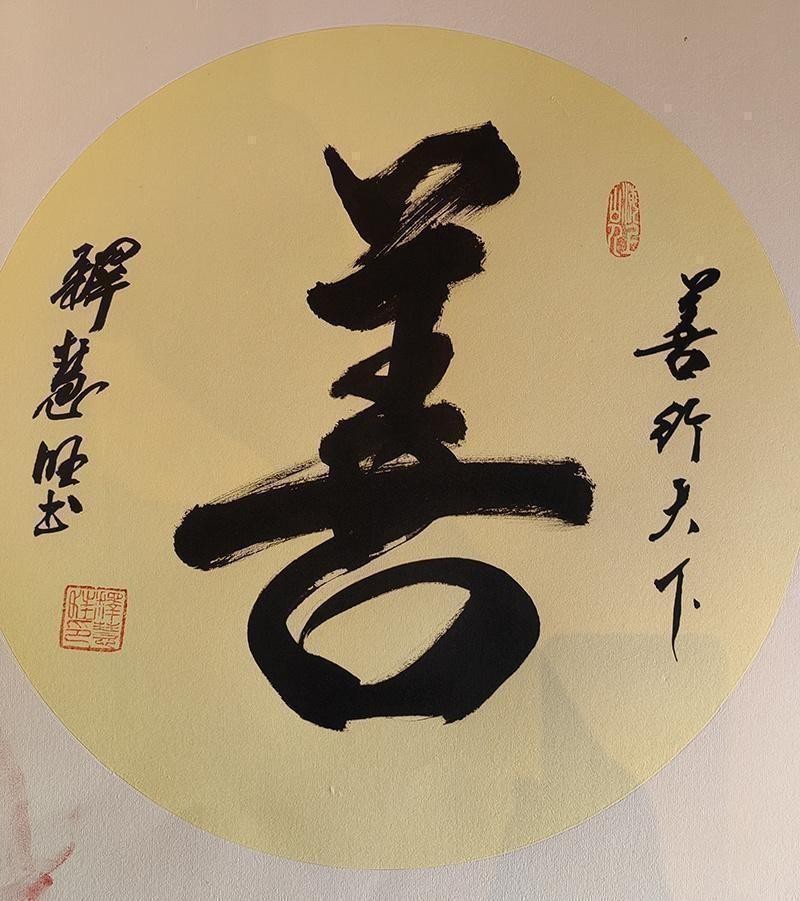 善
善行天下
釋慧旺书